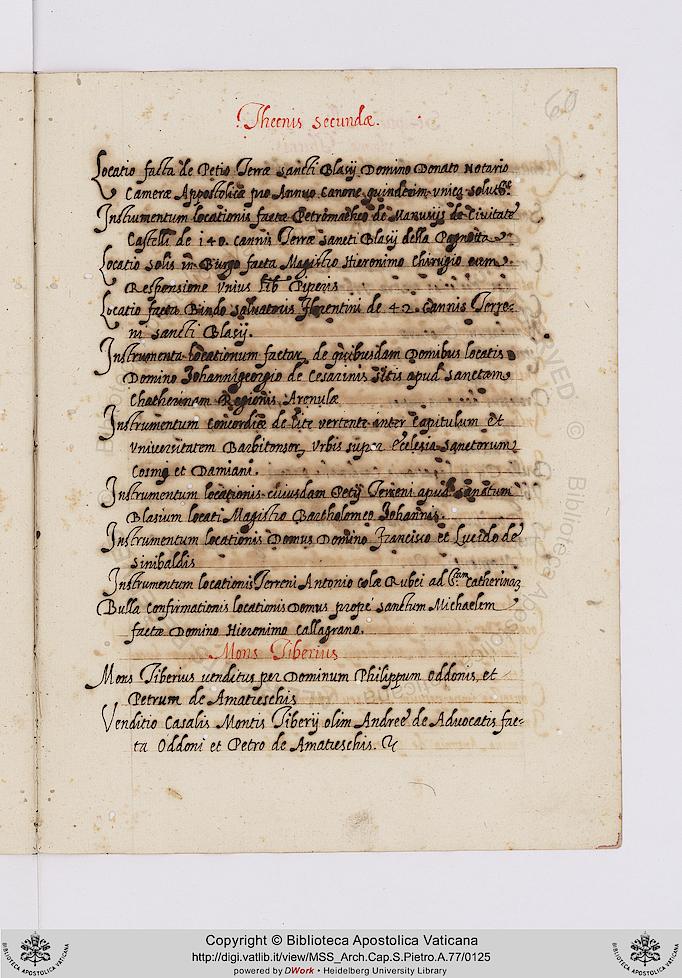 60
Thecnis secundæ.
Locatio facta de Petio Terræ sancti Blasij Domino Donato Notario
Cameræ Appostolicæ pro Annuo Canone quindecim
Instrumentum locationis factæ Petromatheo de Manusijs de Civitate
Castelli de 140. cannis Terræ sancti Blasij della Pagnotta
Locatio solis in Burgo facta Magistro Hieronimo Chirugio cum
Responsione unius lib Piperis
Locatio facta Bindo salvatoris Florentini de 42. Cannis Terre-
ni sancti Blasij.
Instrumenta locationum factar, de quibusdam Domibus locatis
Domino Johannigeorgio de Cesarinis sitis apud sanctam
Chatherinam Regionis Arenulæ
Instrumentum Concordiæ de lite vertente inter Capitulum et
Universitatem Barbitonsor, Urbis super Ecclesia sanctorum
Cosmę et Damiani.
Instrumentum locationis cuiusdam Petij Terreni apud sanctum
Blasium locati Magistro Bartholomeo Johannis.
Instrumentum locationis Domus Domino Francisco et Lucido de
Sinibaldis
Instrumentum locationis Terreni Antonio Colæ Rubei ad Catherinam
Bulla Confirmationis locationis Domus propè sanctum Michaelem
factæ Domino Hieronimo Callagrano.
Mons Tiberius
Mons Tiberius venditus per Dominum Philippum Oddonis, et
Petrum de Amatieschis
Venditio Casalis Montis Tiberij olim Andreę de Advocatis fac-
ta Oddoni et Petro de Amatieschis.
Copyright © Biblioteca Apostolica Vaticana
http://digi.vatlib.it/view/MSS_Arch.Cap.S.Pietro.A.77/0125
powered by DWork • Heidelberg University Library